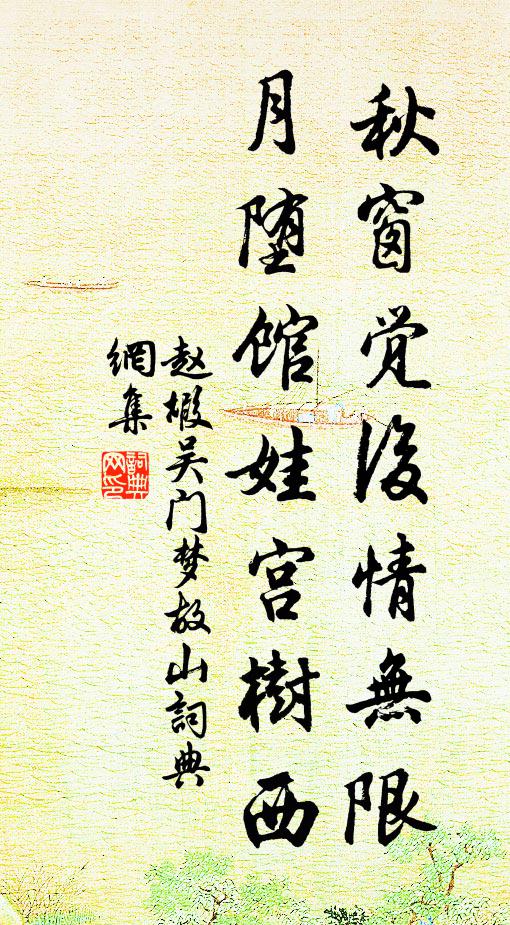 秋窗觉後情無限
月堕館娃宫樹西
赵嘏吴门梦故山詞典
網集
詞典
网印